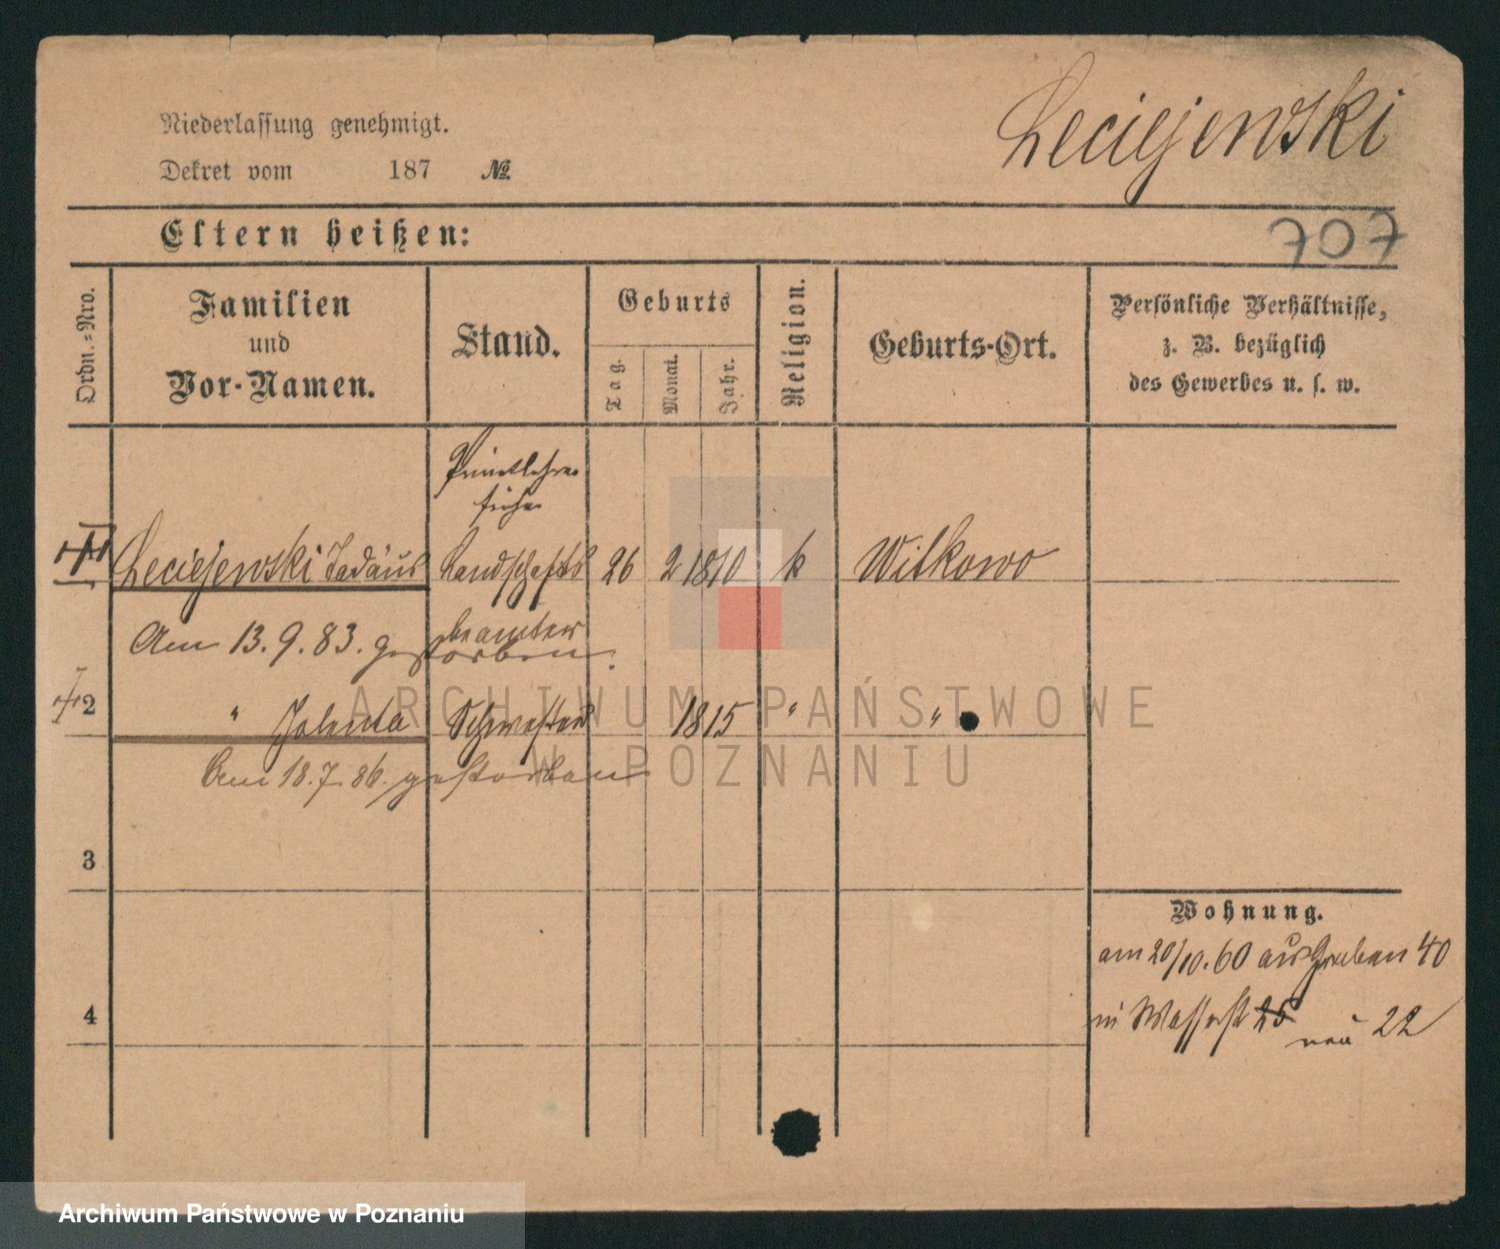 Leciejewski
Niederlassung genehmigt.
Dekret vom 187 №
707
Eltern heißen:
Ordn.=Nro.
Familien
und
Vor-Namen.
Stand.
Geburts
Tag.
Monat.
Jahr.
Religion.
Geburts-Ort.
Persönliche Verhältnisse,
z. B. bezüglich
des Gewerbes u. s. w.
Privatlehrer
früher
1 Leciejewski Tadäus Landschafts 26 2 1810 k Witkowo
beamter
Am 13. 9. 83. gestorben.
2 " Jolenta Schwester 1815 " "
Am 18. 7. 86. gestorben
3
Wohnung.
am 20/10. 60 aus Graben 40
4
in Wasserstr 25 neu 22
ARCHIWUM PAŃSTWOWE
W POZNANIU
Archiwum Państwowe w Poznaniu